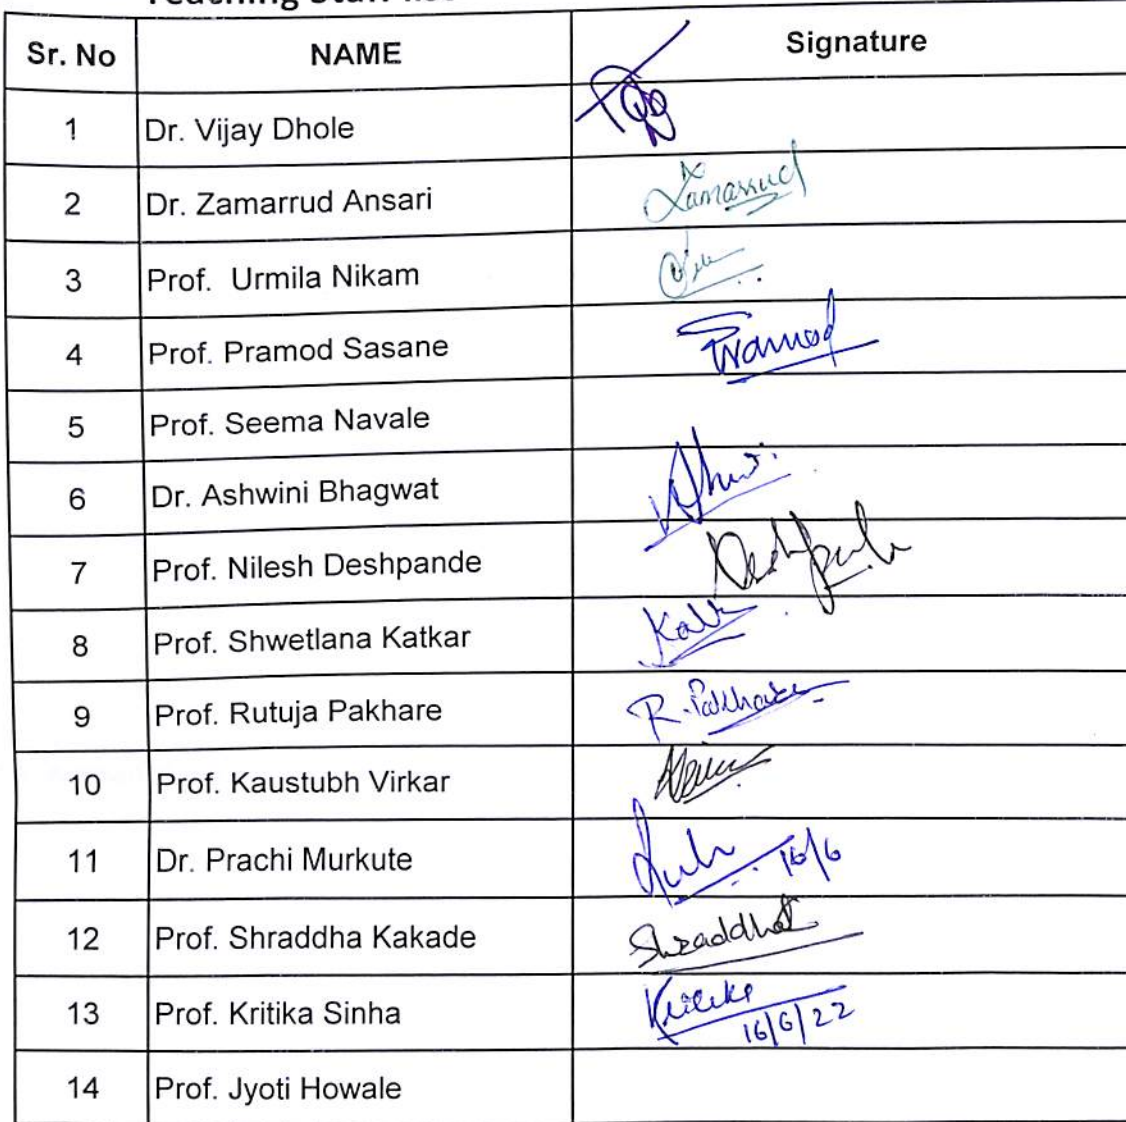 Teaching Staff
Sr. No NAME Signature
1 Dr. Vijay Dhole
2 Dr. Zamarrud Ansari Zamarrud
3 Prof. Urmila Nikam
4 Prof. Pramod Sasane Pramod
5 Prof. Seema Navale
6 Dr. Ashwini Bhagwat
7 Prof. Nilesh Deshpande Deshpande
8 Prof. Shwetlana Katkar
9 Prof. Rutuja Pakhare R. Pakhare
10 Prof. Kaustubh Virkar
11 Dr. Prachi Murkute 16/6
12 Prof. Shraddha Kakade Shraddha
13 Prof. Kritika Sinha Kritika
16/6/22
14 Prof. Jyoti Howale